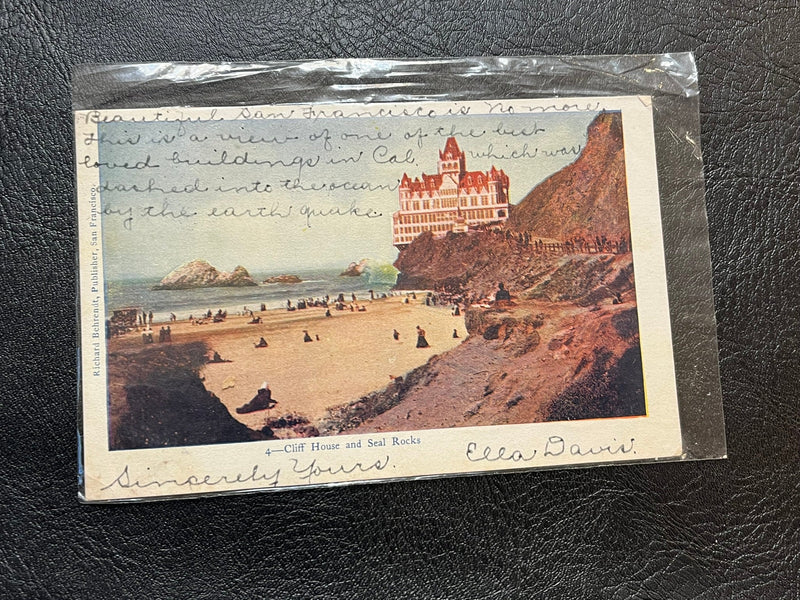 Beautiful San Francisco is no more.
This is a view of one of the best
loved buildings in Cal. which was
dashed into the ocean
by the earth quake.
Richard Behrendt, Publisher, San Francisco.
4—Cliff House and Seal Rocks
Sincerely Yours.
Ella Davis.